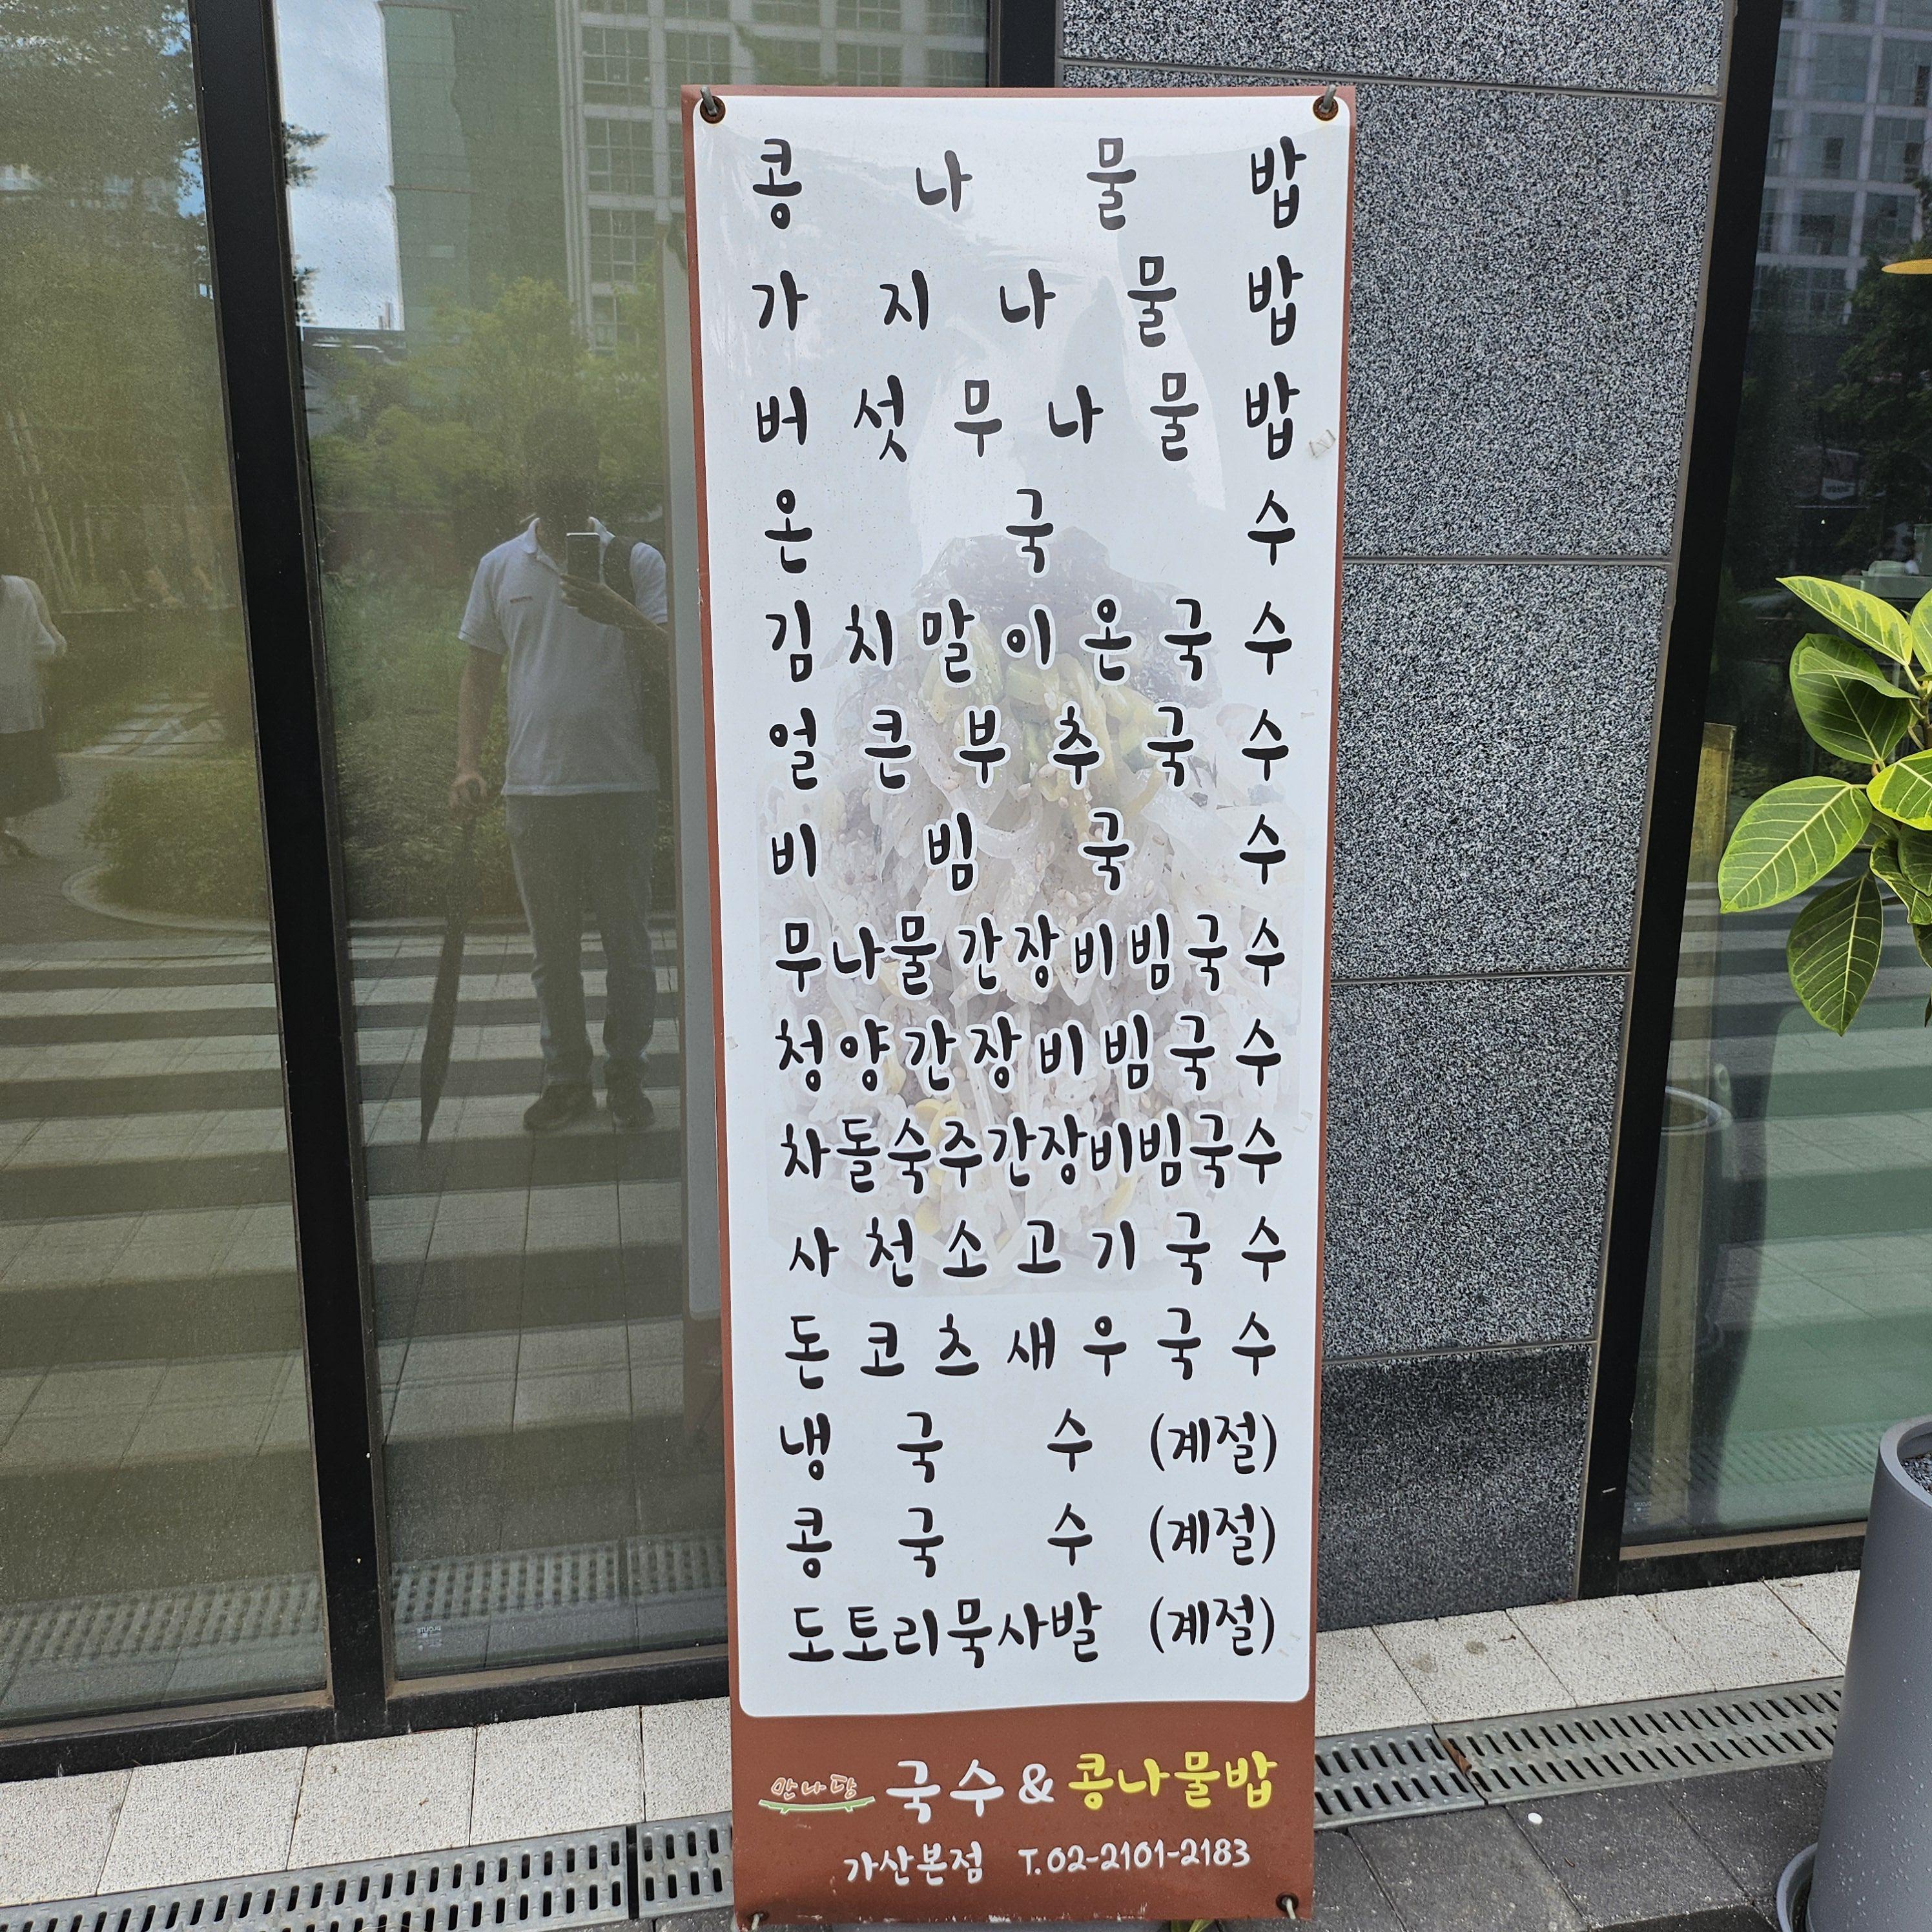 콩나물밥
가지나물밥
버섯무나물밥
온국수
김치말이온국수
얼큰부추국수
비빔국수
무나물간장비빔국수
청양간장비빔국수
차돌숙주간장비빔국수
사천소고기국수
돈코츠새우국수
냉국수 (계절)
콩국수 (계절)
도토리묵사발 (계절)
만나당 국수 & 콩나물밥
가산본점 T. 02-2101-2183